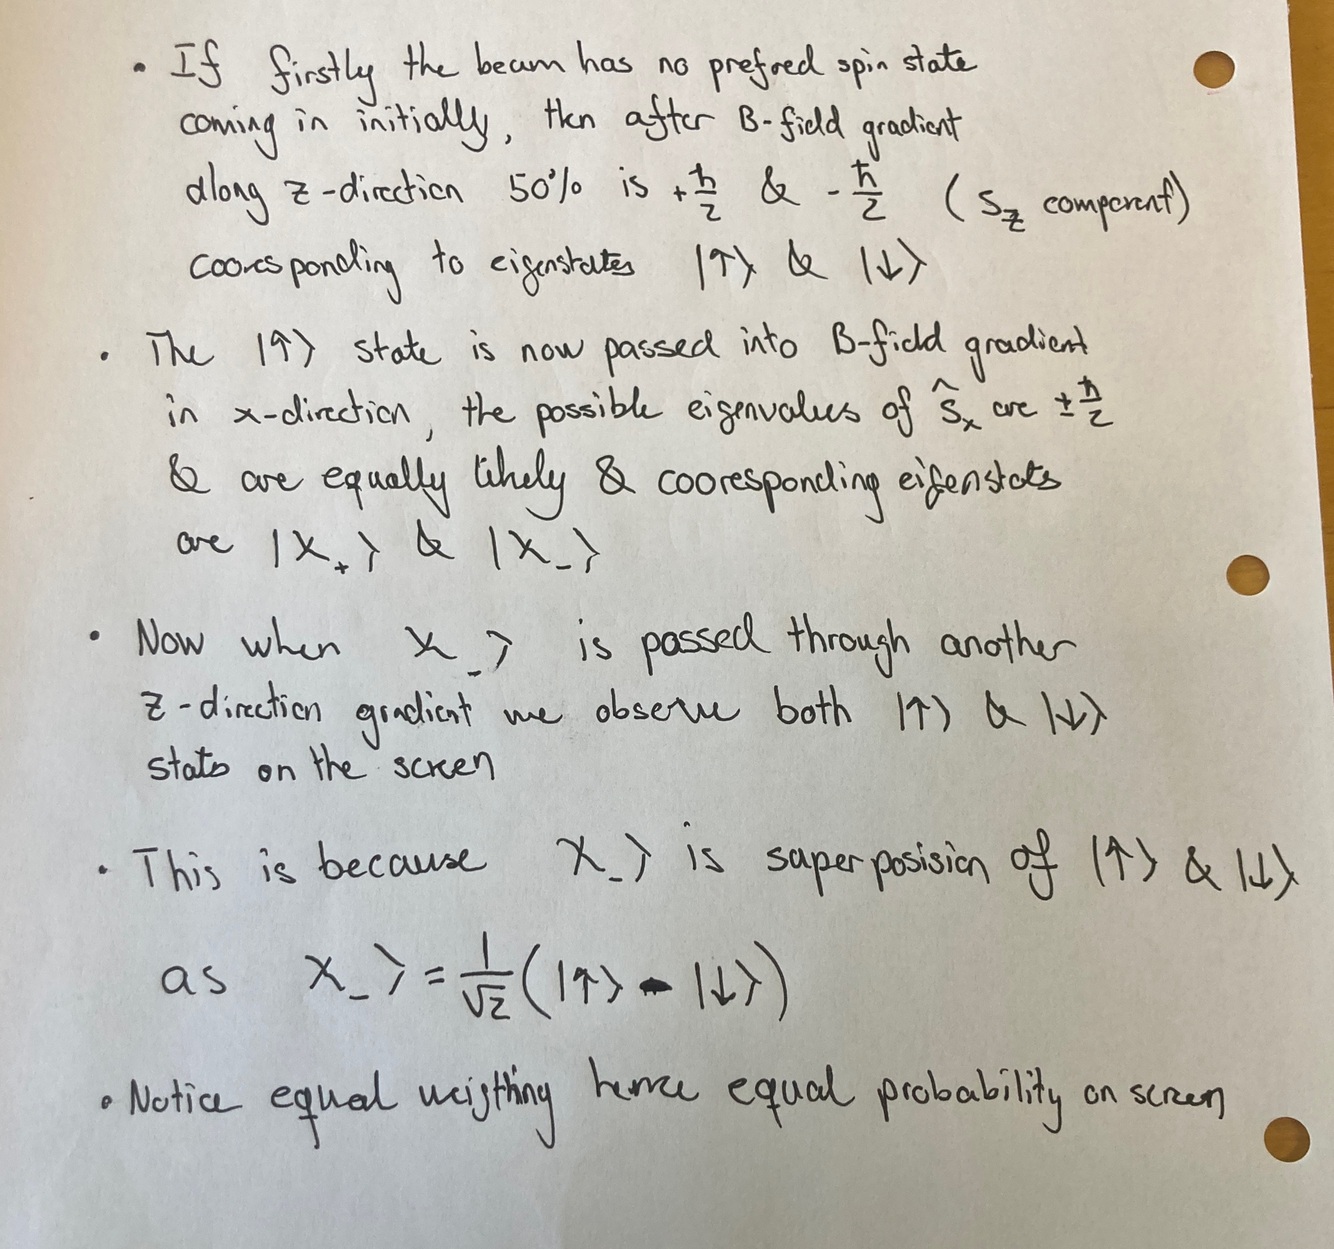 • If firstly the beam has no prefred spin state
coming in initially, then after B-field gradient
along z-direction 50% is +ħ/2 & -ħ/2 (S_z component)
cooresponding to eigenstates |↑⟩ & |↓⟩
• The |↑⟩ state is now passed into B-field gradient
in x-direction, the possible eigenvalues of Ŝ_x are ±ħ/2
& are equally likely & cooresponding eigenstates
are |X_+⟩ & |X_-⟩
• Now when X_-⟩ is passed through another
z-direction gradient we observe both |↑⟩ & |↓⟩
states on the screen
• This is because X_-⟩ is superposision of |↑⟩ & |↓⟩
as X_-⟩ = 1/√2 (|↑⟩ - |↓⟩)
• Notice equal weigthing hence equal probability on screen